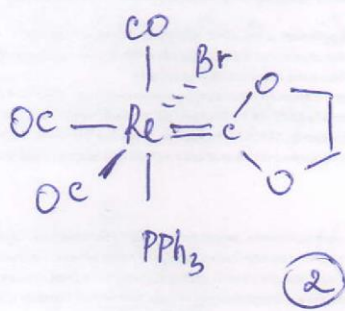 CO
Br
O
OC — Re = C
O
OC
PPh3
2